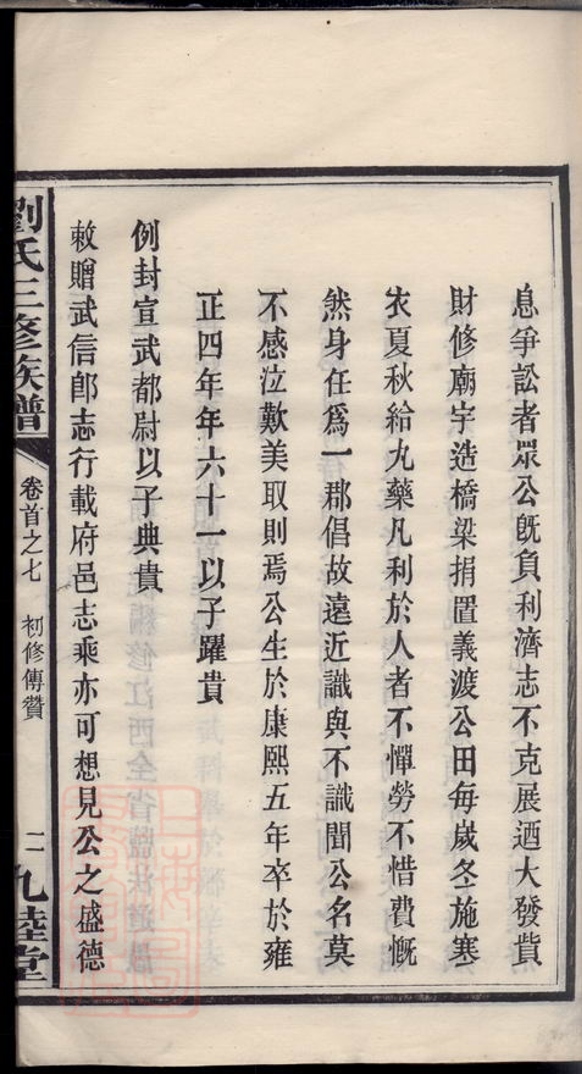 息爭訟者眾公旣負利濟志不克展迺大發貲
財修廟宇造橋梁捐置義渡公田每歲冬施寒
衣夏秋給丸藥凡利於人者不憚勞不惜費慨
然身任爲一郡倡故遠近識與不識聞公名莫
不感泣歎美取則焉公生於康熙五年卒於雍
正四年年六十一以子躍貴
例封宣武都尉以子典貴
敕贈武信郎志行載府邑志乘亦可想見公之盛德
劉氏三修族譜
卷首之七 初修傳贊
二
九睦堂